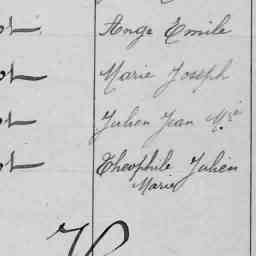 Ange Emile
Marie Joseph
Julien Jean M.ie
Théophile Julien
Marie